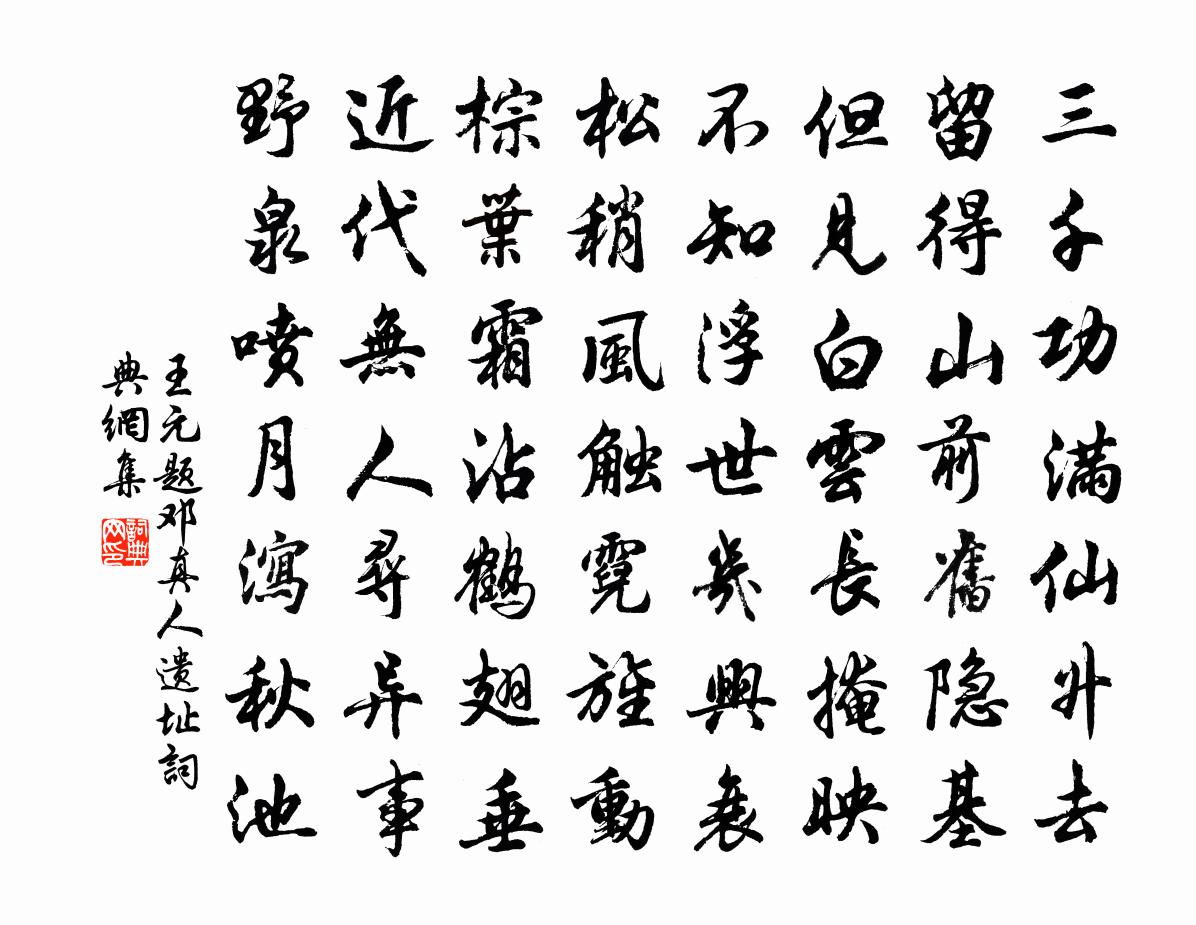 三千功满仙升去
留得山前舊隐基
但見白雲長掩映
不知浮世幾興衰
松稍風触霓旌動
棕葉霜沾鶴翅垂
近代無人尋异事
野泉喷月瀉秋池
王元题邓真人遗址詞
典網集
詞典网印